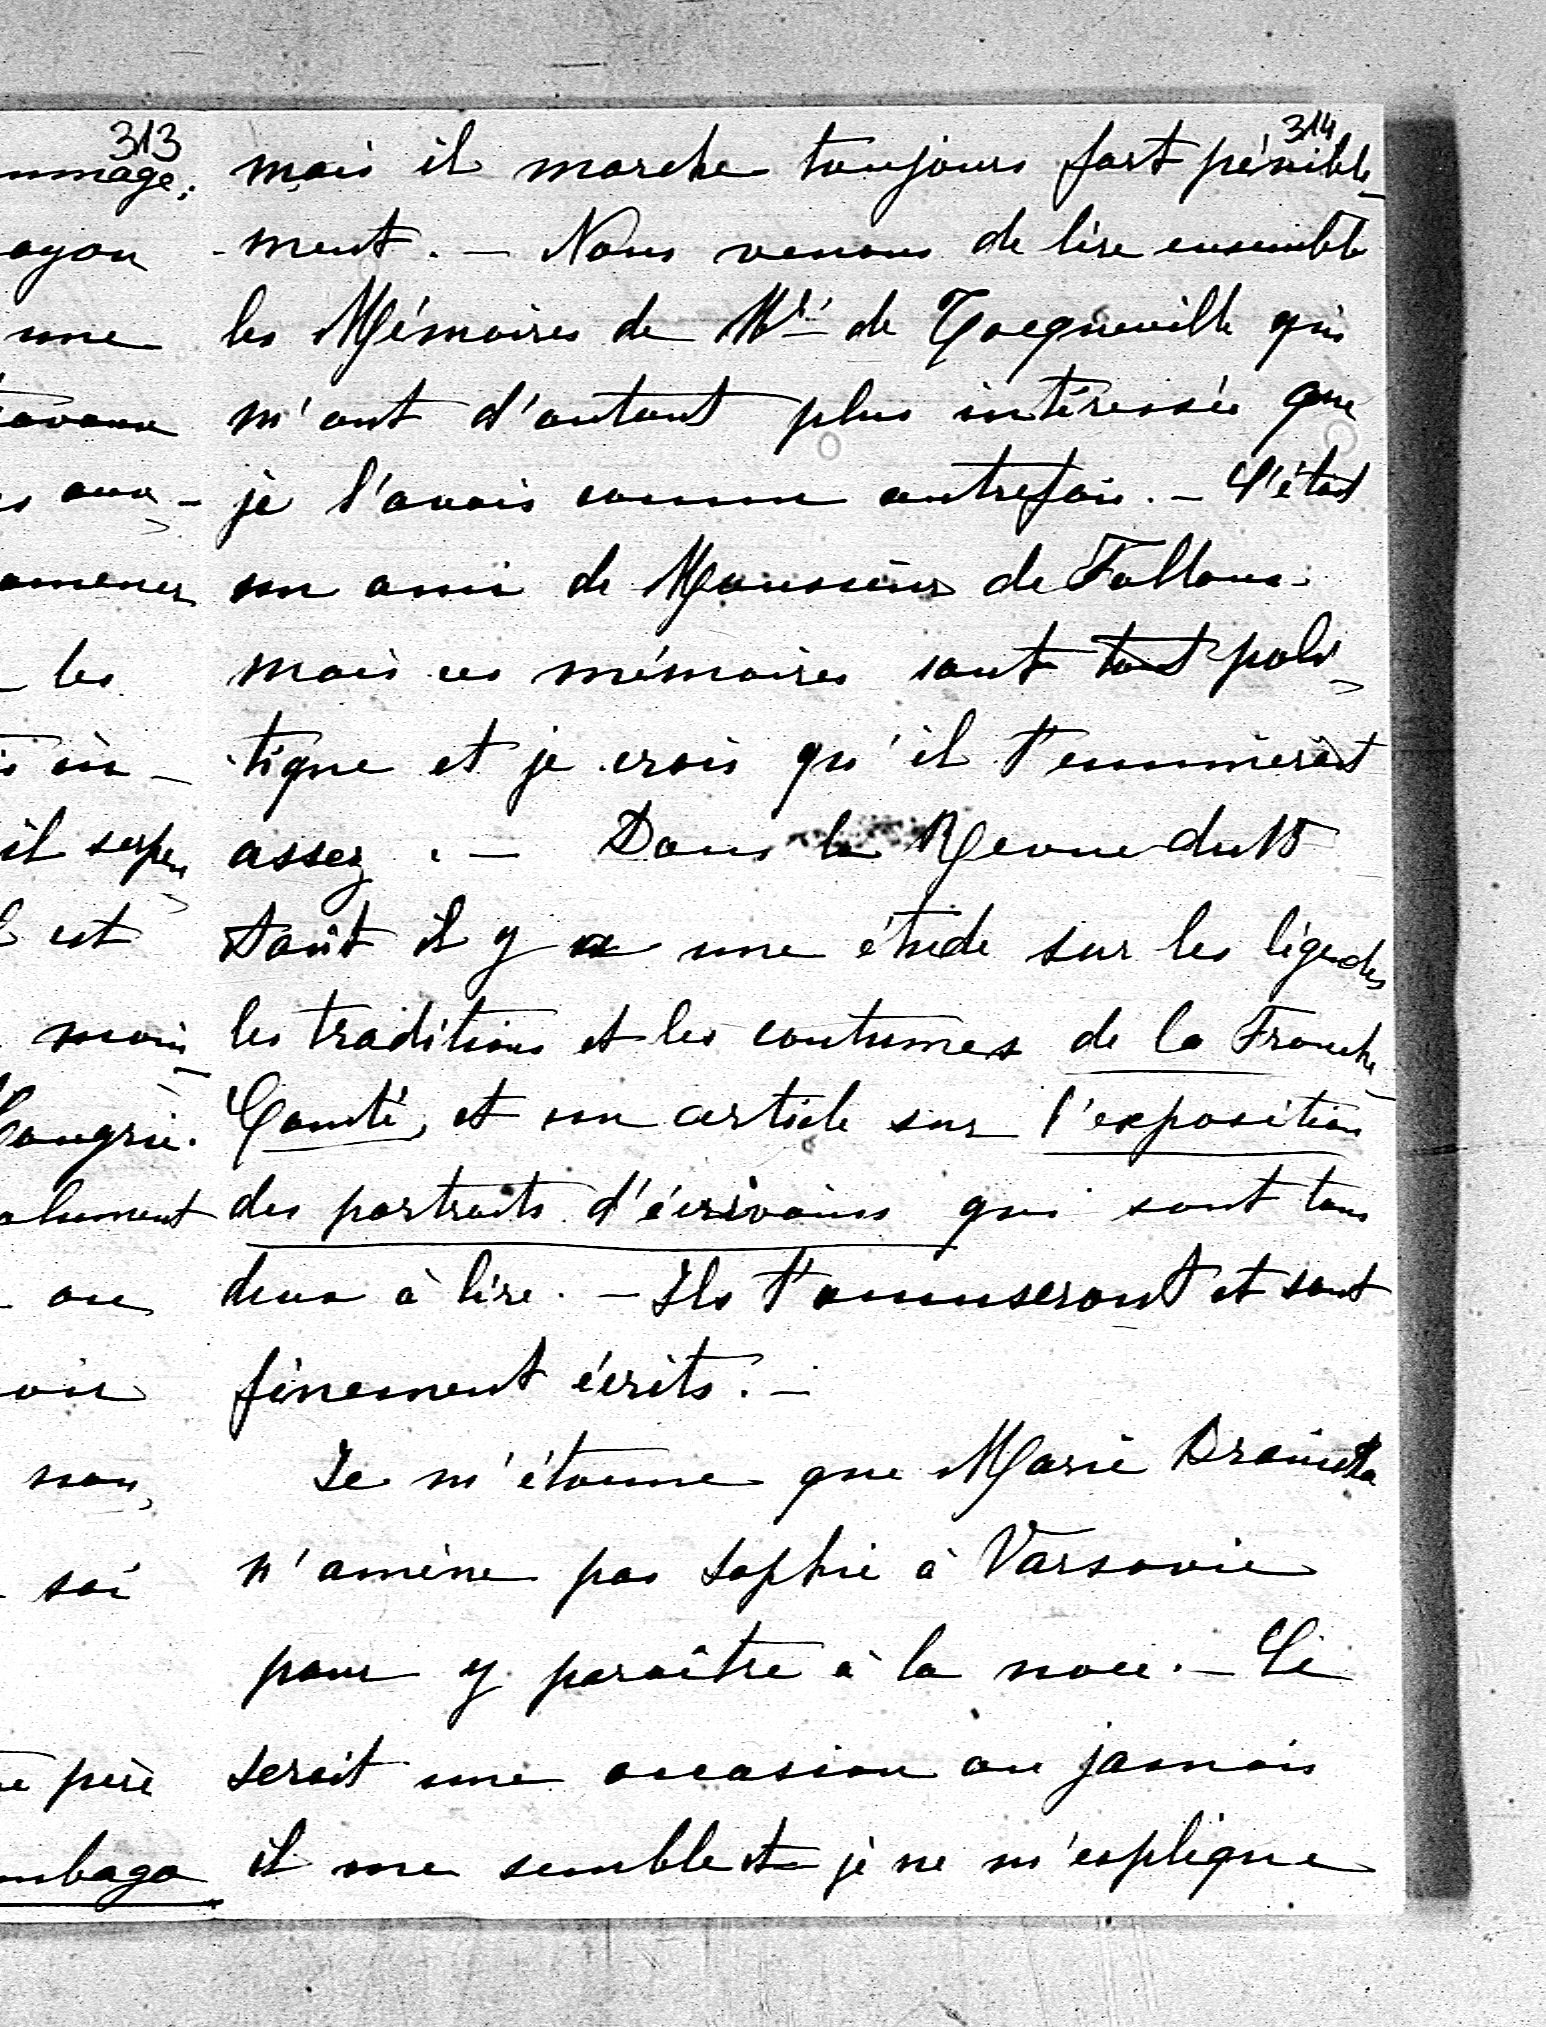 313
mmage;
ayon
une
avaux
s aux -
amener
les
il serpen
est
main
Hongrie.
alument
ou
oir
non,
soi
e père
mbago
314
mais il marche toujours fort pénible-
-ment. - Nous venons de lire ensemble
les Mémoires de Mr de Tocqueville qui
m'ont d'autant plus intéressée que
je l'avais connu autrefois. - C'était
un ami de Monsieur de Falloux.
mais ces mémoires sont tout poli-
tique et je crois qu'il t'ennuierait
assez. - Dans la Revue du 15
Août il y a une étude sur les légendes
les traditions et les coutumes de la Franche-
Comté, et un article sur l'exposition
des portraits d'écrivains qui sont tous
deux à lire. - Ils t'amuseront et sont
finement écrits. -
Je m'étonne que Marie
n'amène pas Sophie à Varsovie
pour y paraître à la noce. - Ce
serait une occasion ou jamais
il me semble et je ne m'explique